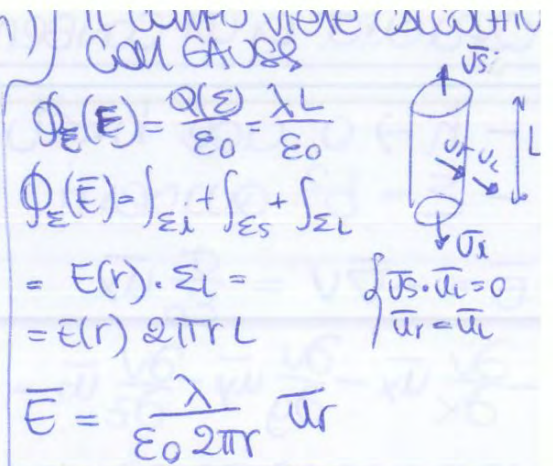 IL CAMPO VIENE CALCOLATO
CON GAUSS
Φ_Σ(E) = Q(Σ)/ε0 = λL/ε0
Φ_Σ(E̅) = ∫_Σi + ∫_Σs + ∫_ΣL
= E(r) · Σ_L =
= E(r) 2πr L
E̅ = λ/(ε0 2πr) u̅r
u̅s
ur uL
L
u̅i
{ u̅s · u̅L = 0
u̅r = u̅L